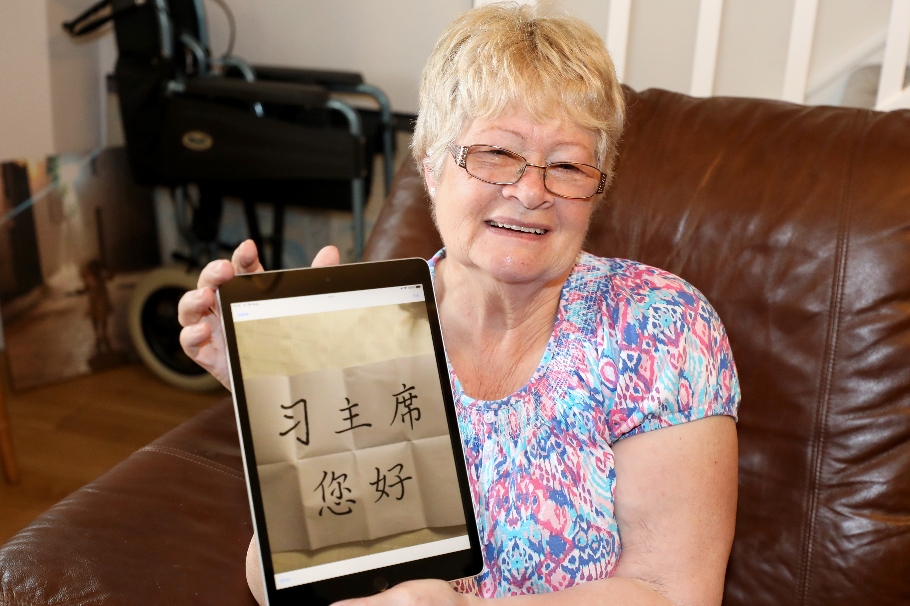 习主席
您好